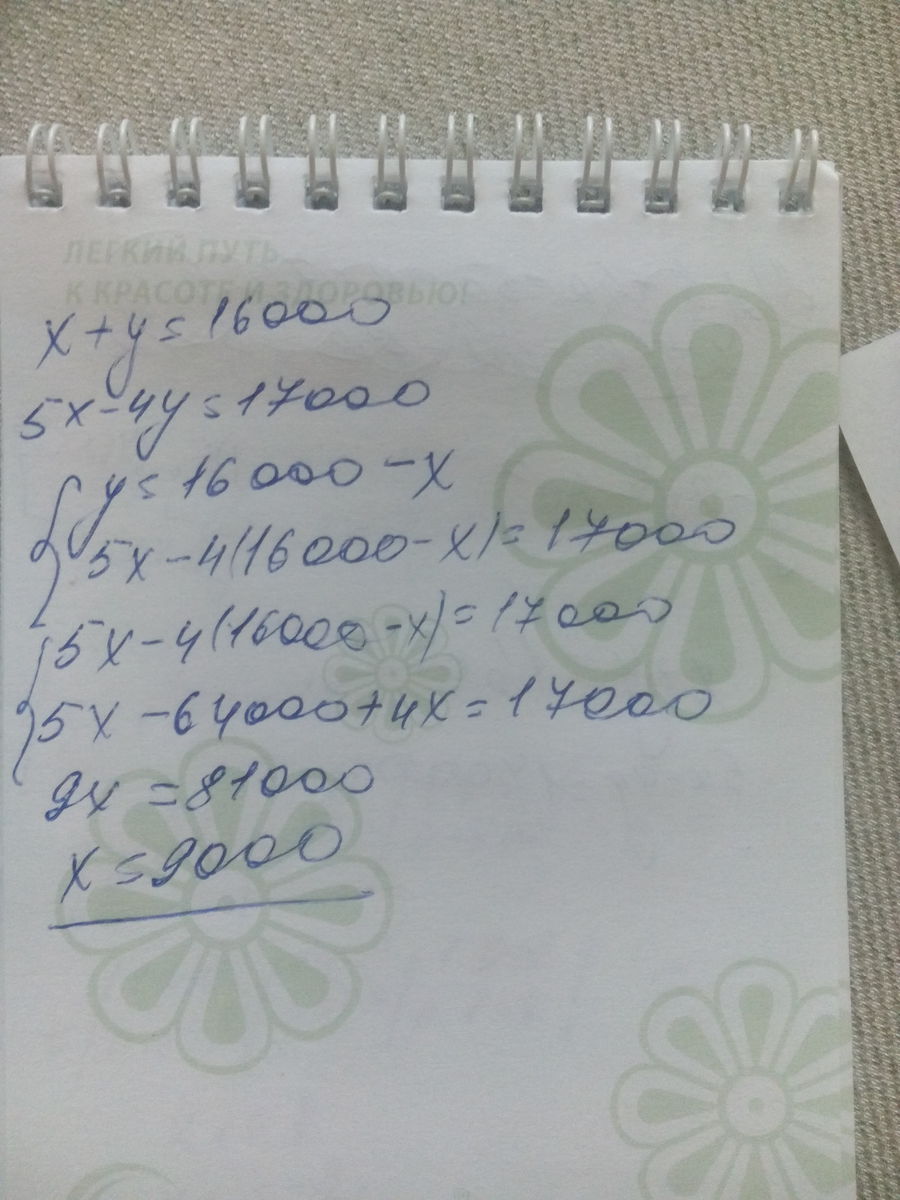 ЛЕГКИЙ ПУТЬ
К КРАСОТЕ И ЗДОРОВЬЮ!
x+y=16000
5x-4y=17000
y=16000-x
5x-4(16000-x)=17000
5x-4(16000-x)=17000
5x-64000+4x=17000
9x=81000
x=9000